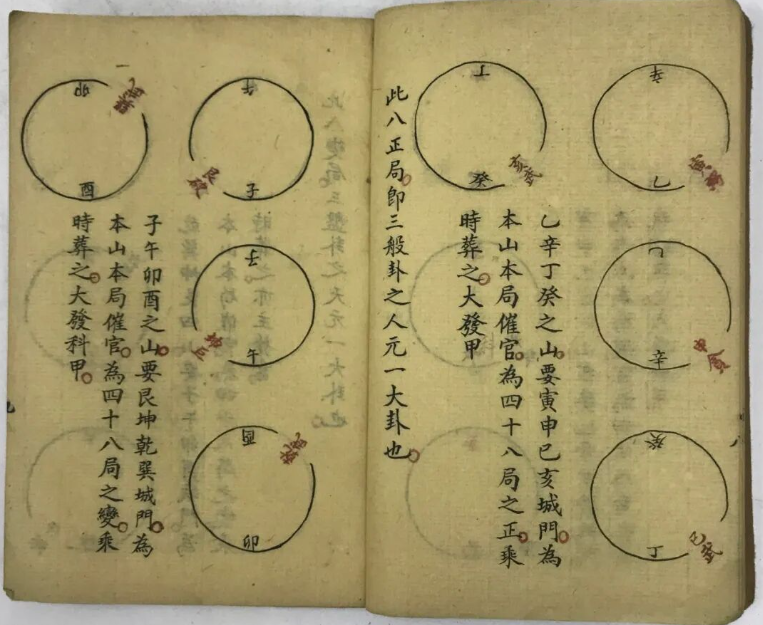 辛
乙
乙
辛
癸
丁
乙辛丁癸之山要寅申巳亥城門為
本山本局催官為四十八局之正乘
時葬之大發甲
丁
癸
此八正局即三般卦之人元一大卦也
午
子
子
午
酉
卯
子午卯酉之山要艮坤乾巽城門為
本山本局催官為四十八局之變乘
時葬之大發科甲
卯
酉